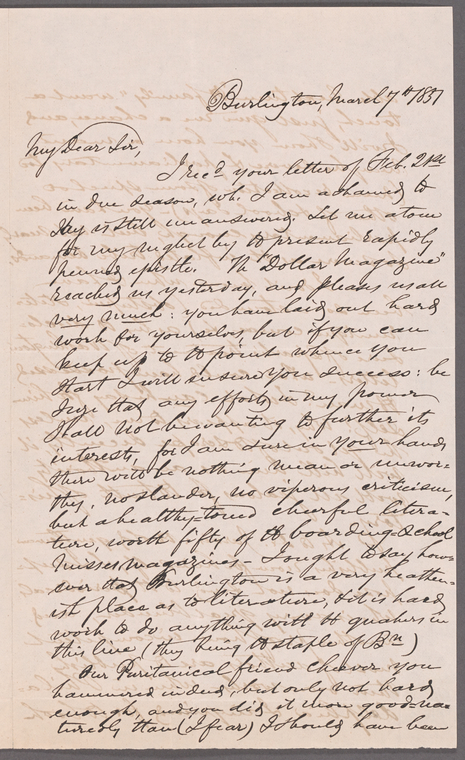 Burlington, March 7th 1851
My Dear Sir,
I recd your letter of Feb. 21st
in due season, wh. I am ashamed to
say is still unanswered. Let me atone
for my neglect by th present rapidly
penned epistle. Th "Dollar Magazine"
reached us yesterday, and pleases us all
very much: you have laid out hard
work for yourselves, but if you can
keep up to th point whence you
start I will insure you success: be
sure that any efforts in my power
shall not be wanting to further its
interests, for I am sure in your hands
there will be nothing mean or unwor-
thy, no slander, no viperous criticism,
but a healthy-toned cheerful litera-
ture, worth fifty of th boarding-school
Misses magazines – I ought to say how-
ever that Burlington is a very heathen-
ish place as to literature, & it is hard
work to do anything with th quakers in
this line (they being th staple of Bn)
Our Puritanical friend Cheever you
hammered indeed, but only not hard
enough, and you did it more good-na-
turedly than (I fear) I should have been